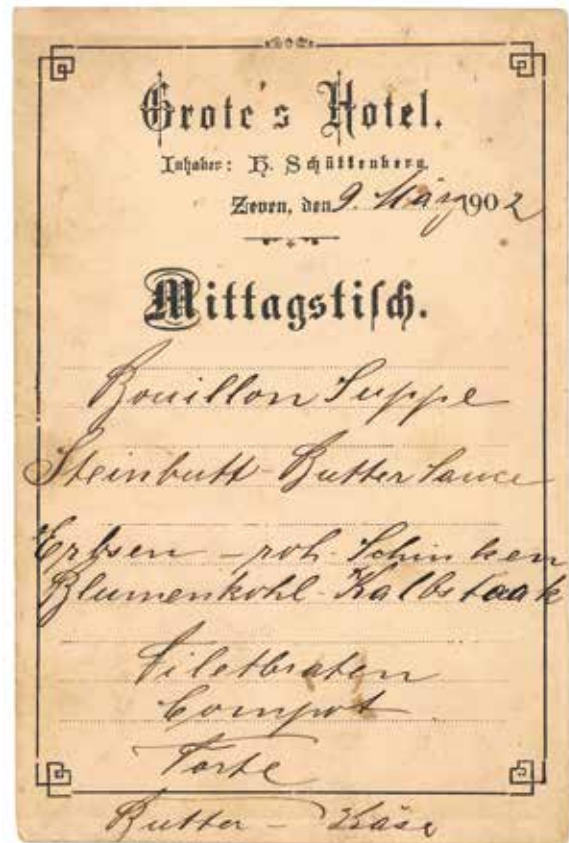 Grote's Hotel.
Inhaber: H. Schüttenberg.
Zeven, den 9. März 1902
Mittagstisch.
Bouillon Suppe
Steinbutt - Butter Sauce
Erbsen - roh. Schinken
Blumenkohl - Kalbstaak
Filetbraten
Compot
Torte
Butter - Käse